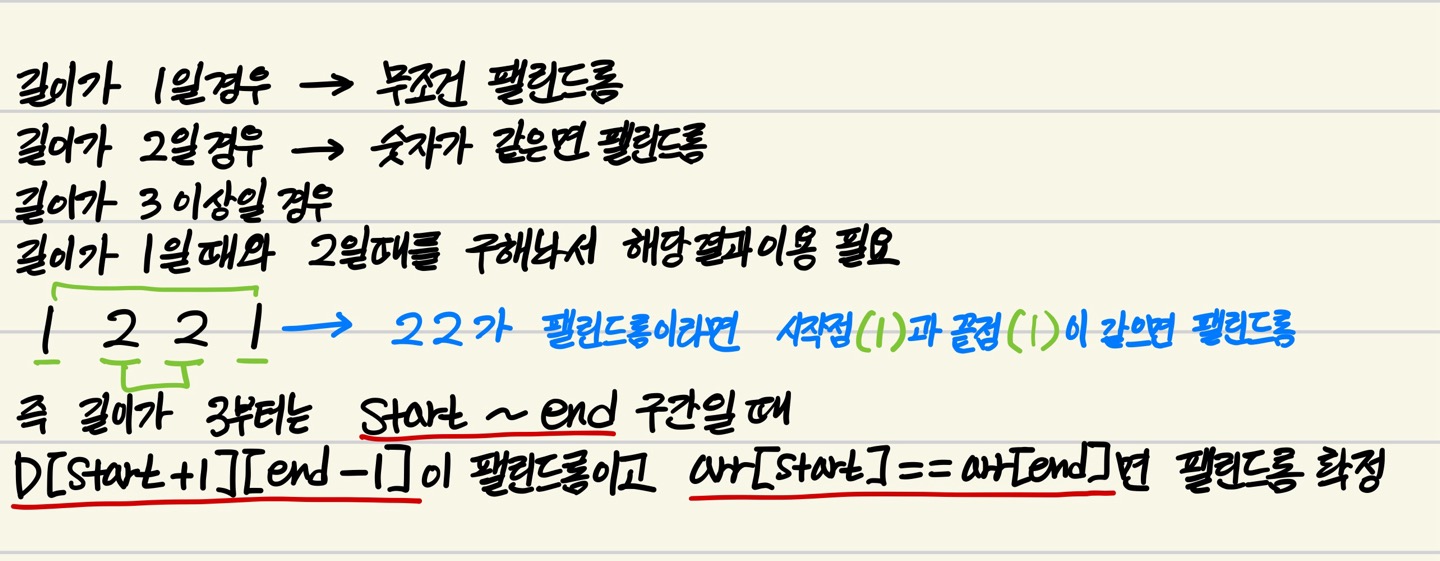 길이가 1일경우 → 무조건 팰린드롬
길이가 2일경우 → 숫자가 같은면 팰린드롬
길이가 3 이상일 경우
길이가 1일때와 2일때를 구해놔서 해당결과이용 필요
1 2 2 1 → 22가 팰린드롬이라면 시작점(1)과 끝점(1)이 같으면 팰린드롬
즉 길이가 3부터는 start ~ end 구간일 때
D[start+1][end-1]이 팰린드롬이고 arr[start]==arr[end]면 팰린드롬 확정